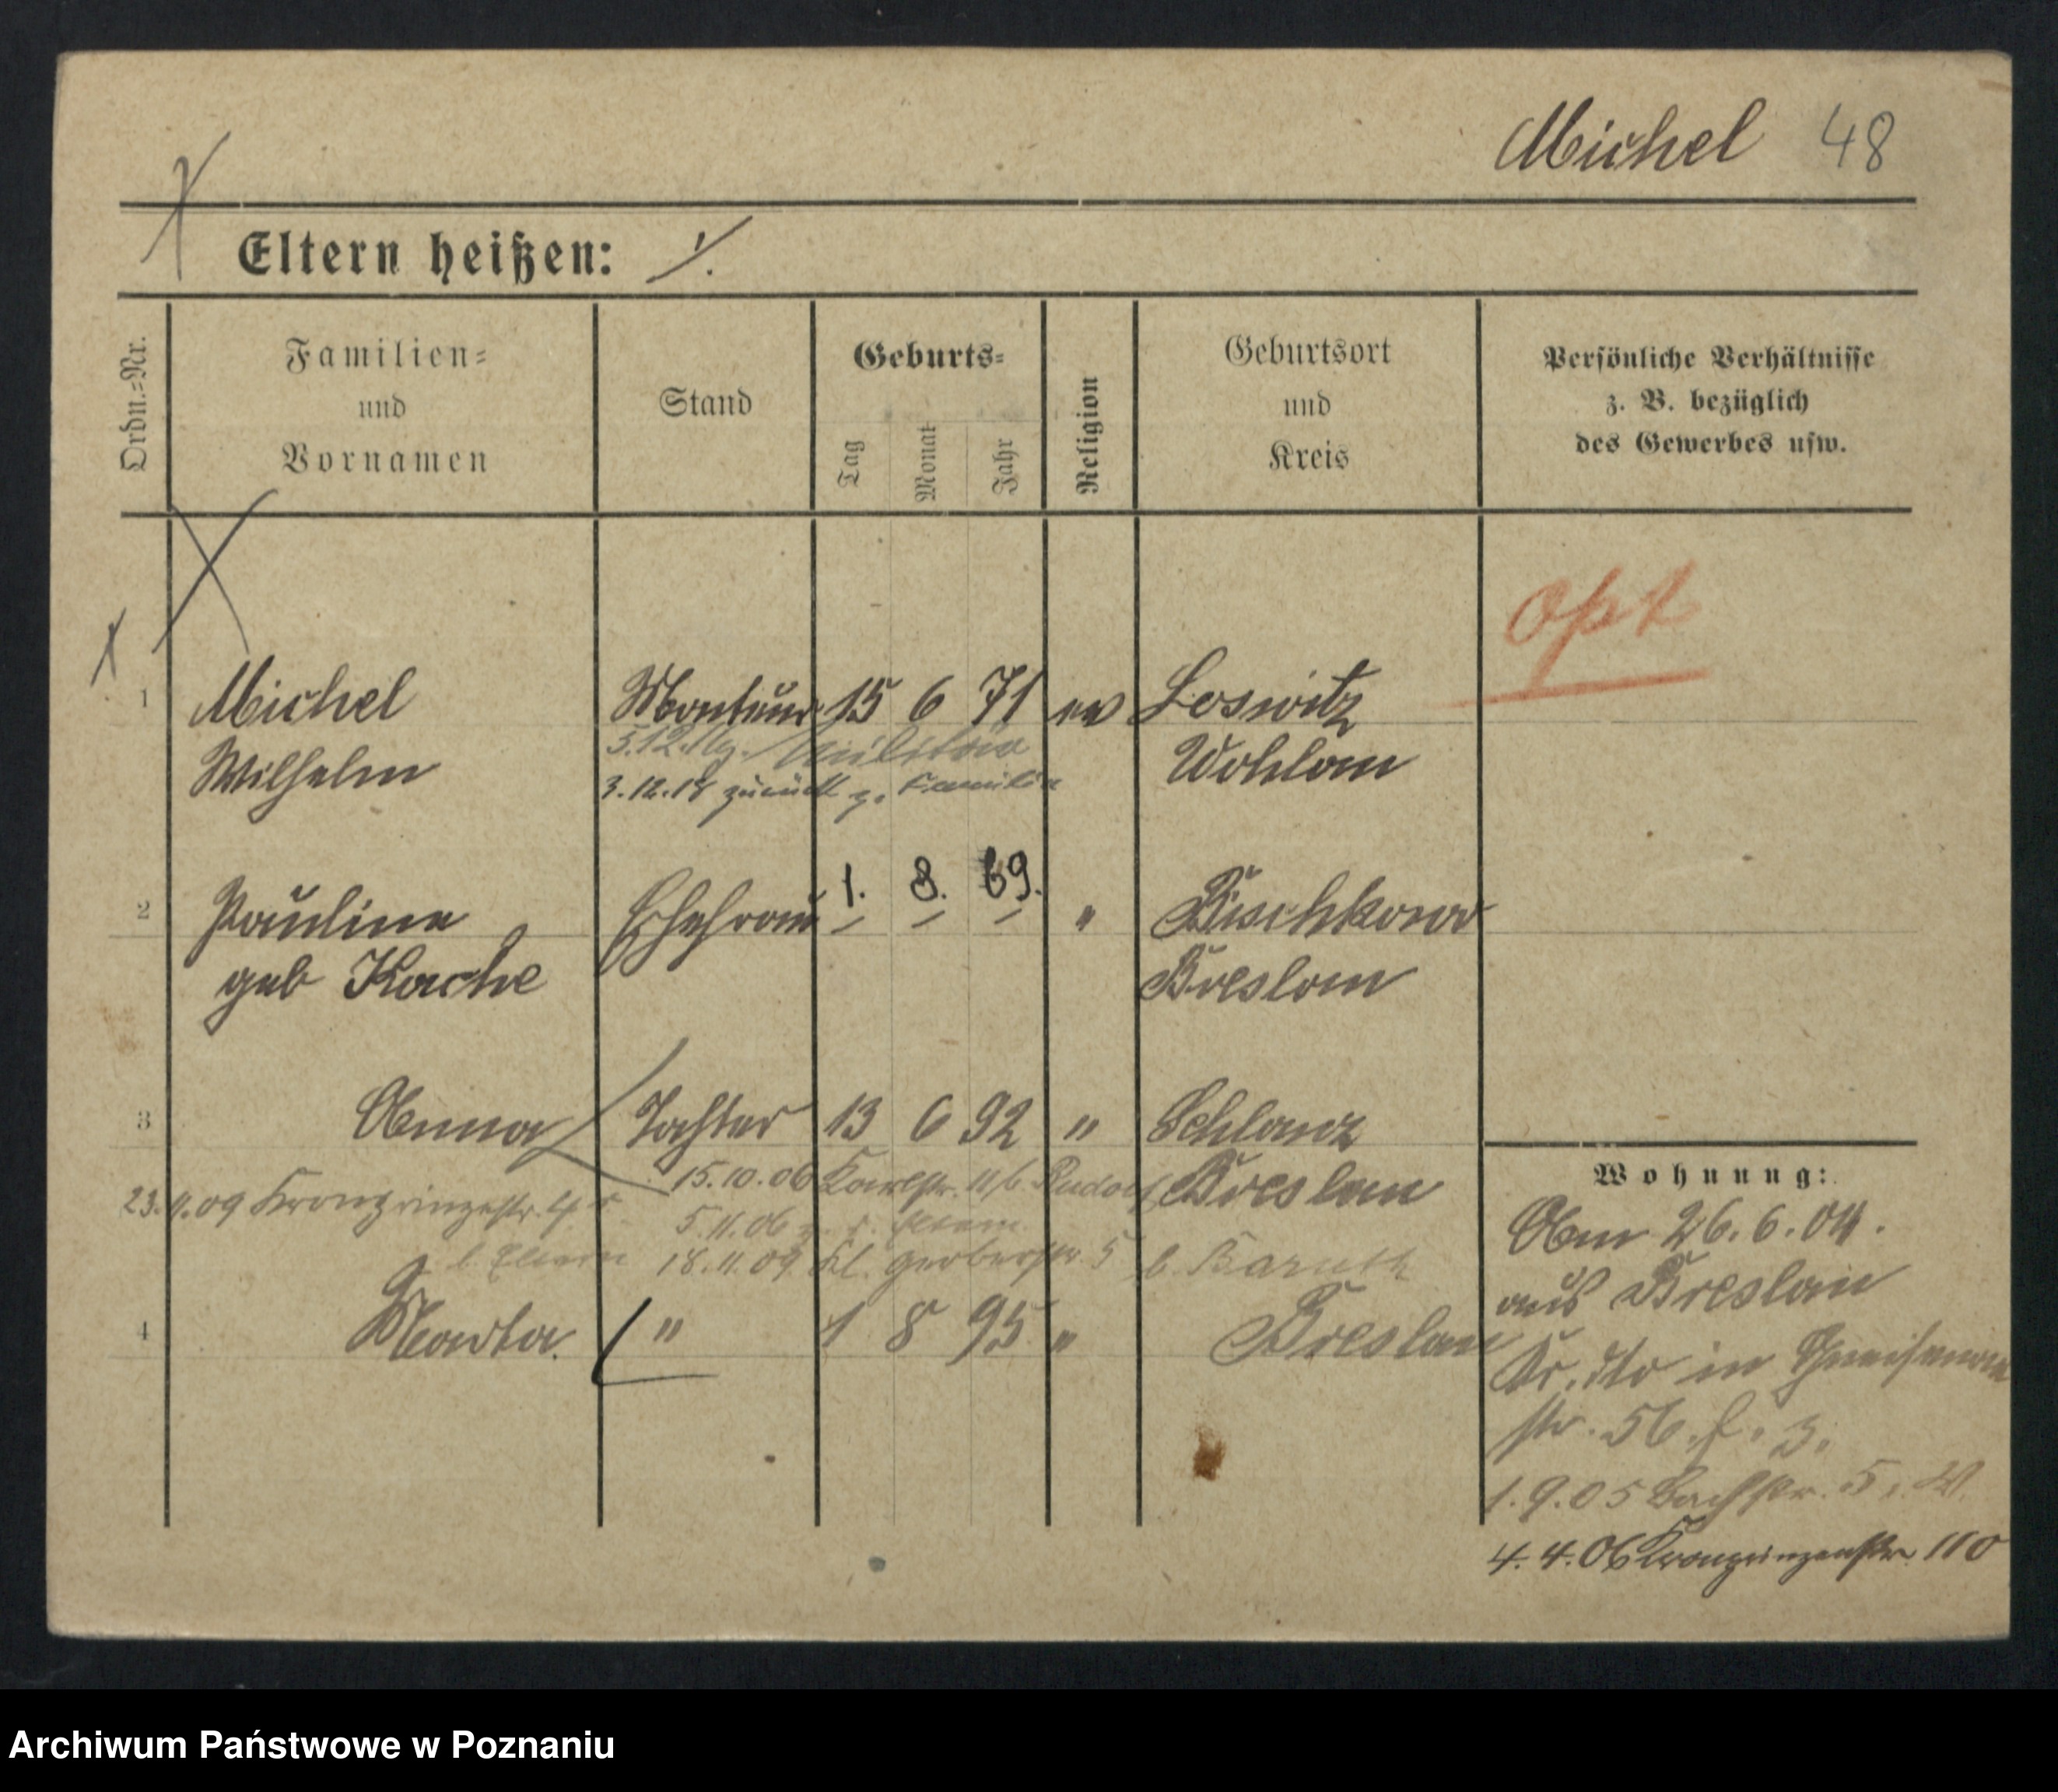 Michel 48
Eltern heißen: ./.
Ordn.=Nr.
Familien=
und
Vornamen
Stand
Geburts=
Tag
Monat
Jahr
Religion
Geburtsort
und
Kreis
Persönliche Verhältnisse
z. B. bezüglich
des Gewerbes usw.
opt
1 Michel Monteur 15 6 71 ev Loswitz
5.12. Militär
Wilhelm Wohlau
3.12.18 zurück z. Familie
2 Pauline Ehefrau 1. 8. 69. " Bischkowo
geb Kache Breslau
3 Anna Tochter 13 6 92 " Schlanz
15.10.06 b. Rudolf Breslau
23.11.09 Kronprinzenstr.
5.11.06 z. Eltern
b. Eltern 18.11.09 Kl. Gerberstr. 5 b. Baruth
4 Marta " 1 8 95 " Breslau
Wohnung:
Am 26.6.04.
aus Breslau
Kr. dto in Gneisenau
str. 56. 3.
1.9.05 Bachstr. 5.
4.4.06 Kronprinzenstr. 110
Archiwum Państwowe w Poznaniu